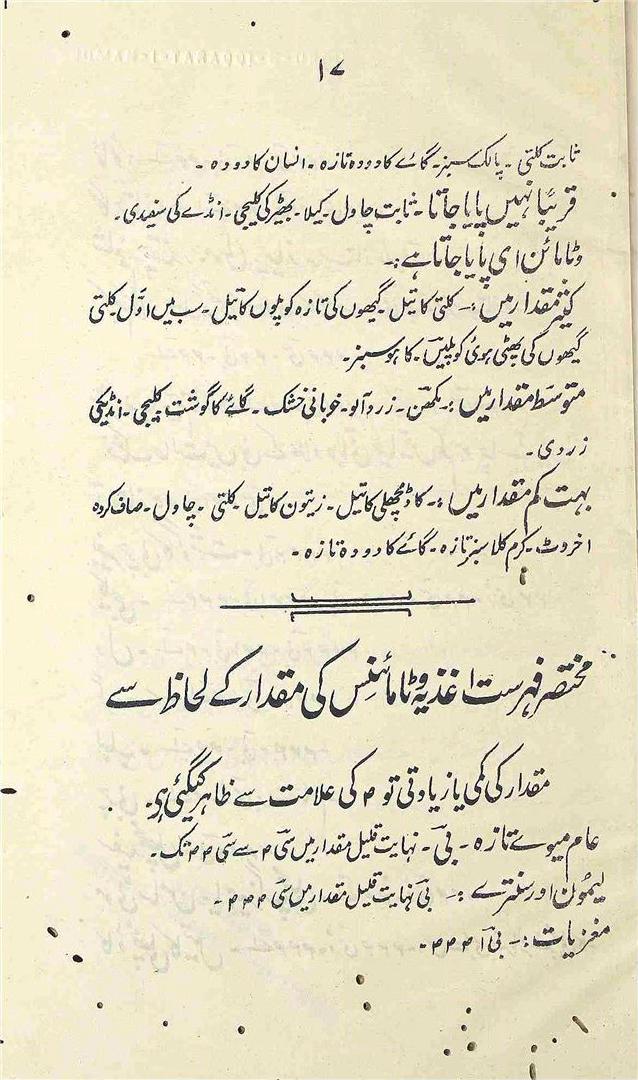 ۱۷
ثابت کلتی ۔ پالک سبز ۔ گائے کا دودہ تازہ ۔ انسان کا دودہ ۔
قریباً نہیں پایا جاتا ۔ ثابت چاول ۔ کیلا ۔ بھیڑ کی کلیجی ۔ انڈے کی سفیدی ۔
وٹامائن ای پایا جاتا ہے :۔
کثیر مقدار میں :۔ کلتی کا تیل ۔ گیھوں کی تازہ کوپلوں کا تیل ۔ سب میں اوّل کلتی
گیھوں کی پھٹی ہوئی کوپلیں ۔ کاہو سبز ۔
متوسط مقدار میں :۔ مکھن ۔ زرد آلو ۔ خوبانی خشک ۔ گائے کا گوشت ۔ کلیجی ۔ انڈیکی
زردی ۔
بہت کم مقدار میں :۔ کاڈ مچھلی کا تیل ۔ زیتون کا تیل ۔ کلتی ۔ چاول ۔ صاف کردہ
اخروٹ ۔ کرم کلا سبز تازہ ۔ گائے کا دودہ تازہ ۔
مختصر فہرست اغذیہ وٹامائنس کی مقدار کے لحاظ سے
مقدار کی کمی یا زیادتی تو ۴ کی علامت سے ظاہر کیگئی ہی ۔
عام میوے تازہ ۔ بی ۔ نہایت قلیل مقدار میں سی ۴ سے سی ۴۴ تک ۔
لیمون اور سنترے :۔ بی نہایت قلیل مقدار میں سی ۴۴۴ ۔
مغزیات :۔ بی ۴۴۴ ۔